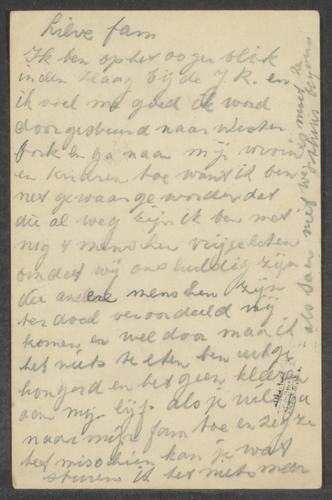 Lieve fam
Ik ben op het oogenblik
in den Haag bij de J R. en
ik voel me goed ik word
doorgestuurd naar Wester
fork en ga naar mij vrouw
en kinderen toe want ik ben
net gewaar geworden dat
die al weg zijn ik ben met
nog 4 menschen vrijgelaten
omdat wij onschuldig zijn
die andere menschen zijn
ter dood veroordeeld wij
komen er wel door maar ik
heb niets te eten ben uitge
hongerd en heb geen kleere
aan mijn lijf als je wil ga
naar mijn fam toe en zeg ze
het misschien kan je wat
sturen ik heb niets meer
als daar niet weg is moet je